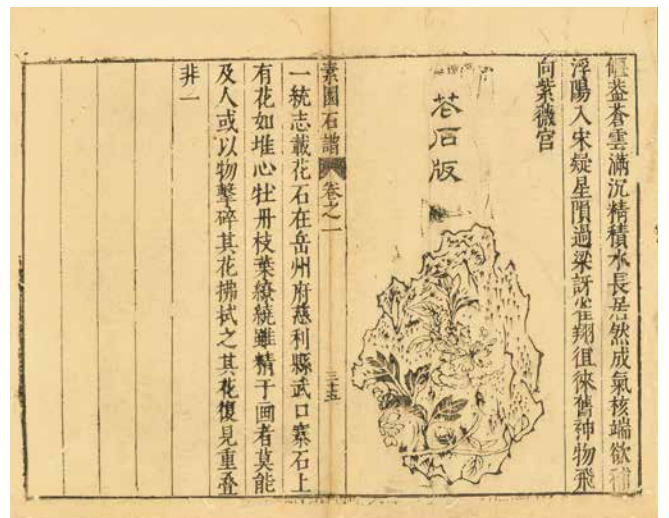 蓋蒼雲滿沉精積水長居然成氣核端欲補
浮陽入宋疑星隕過梁訝雀翔徂徠舊神物飛
向紫薇宮
花石版
素園石譜 卷之一 三十五
一統志載花石在岳州府慈利縣武口寨石上
有花如堆心牡丹枝葉繚繞雖精于画者莫能
及人或以物擊碎其花拂拭之其花復見重叠
非一